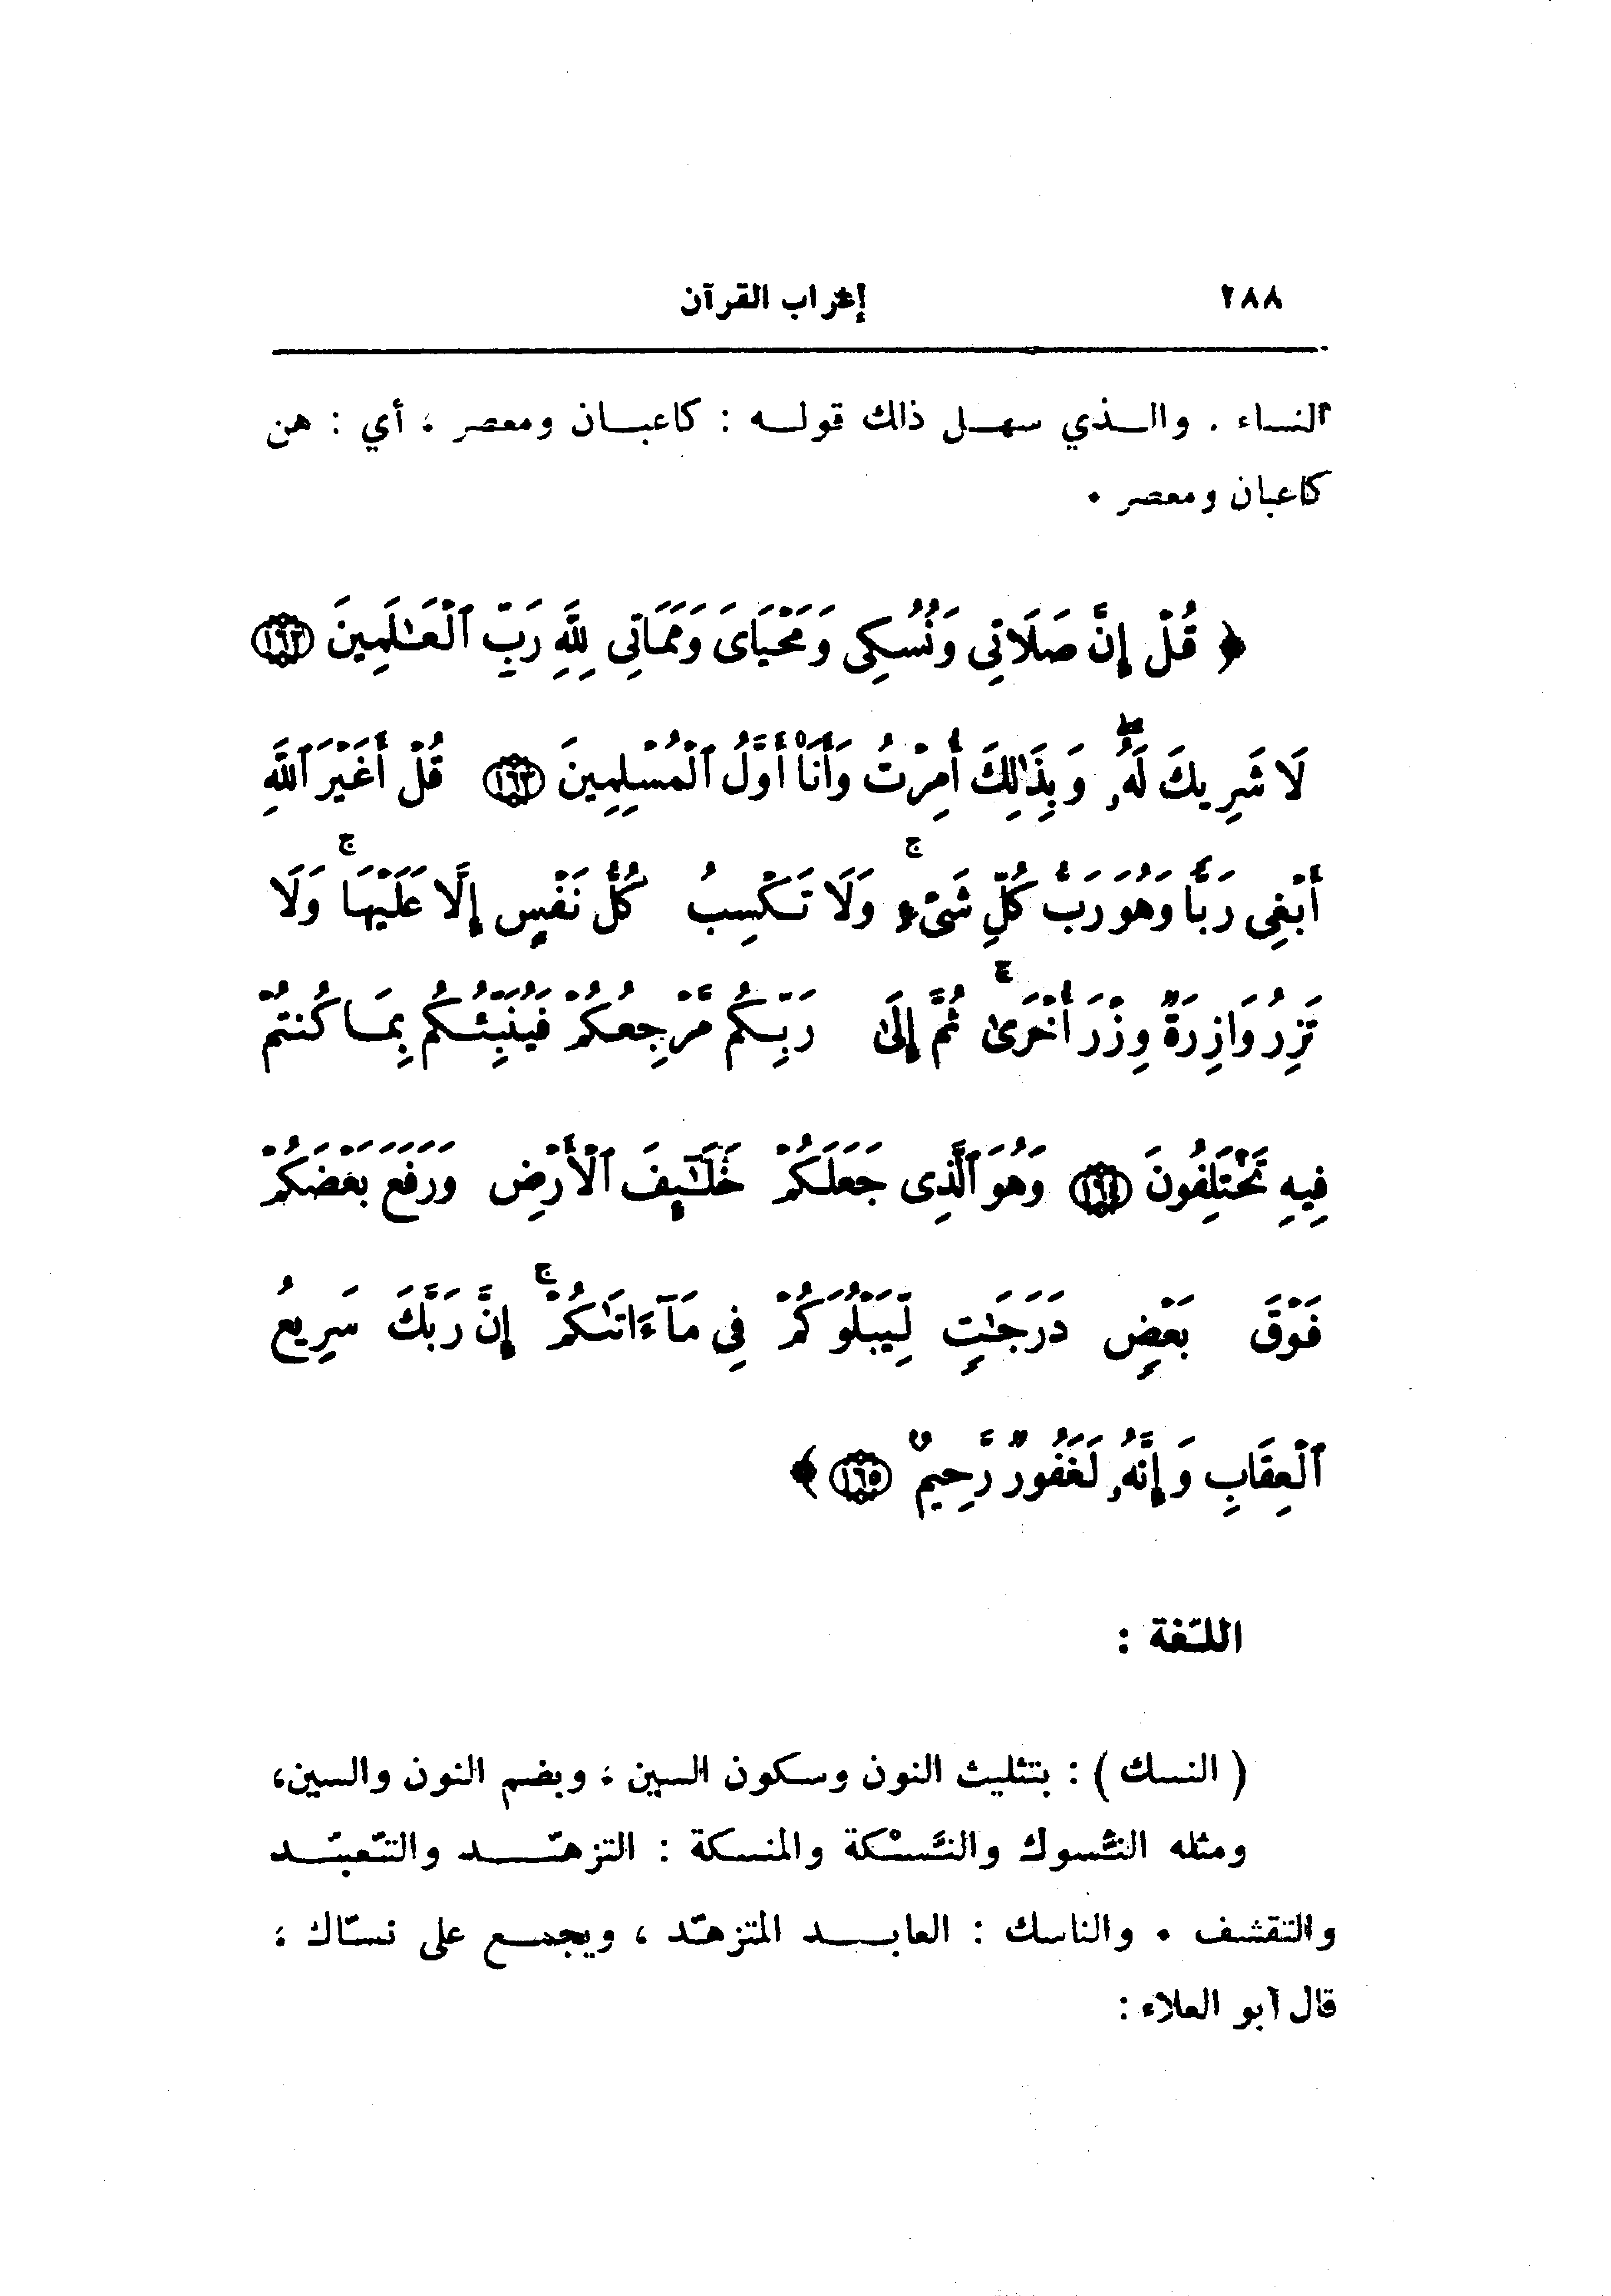 ٢٨٨ إعراب القرآن
النساء . والذي سهل ذلك قوله : كاعبان ومعصر ، أي : هن
كاعبان ومعصر .
﴿ قُلْ إِنَّ صَلَاتِى وَنُسُكِى وَمَحْيَاىَ وَمَمَاتِى لِلَّهِ رَبِّ ٱلْعَـٰلَمِينَ ١٦٢
لَا شَرِيكَ لَهُۥۖ وَبِذَٰلِكَ أُمِرْتُ وَأَنَا۠ أَوَّلُ ٱلْمُسْلِمِينَ ١٦٣ قُلْ أَغَيْرَ ٱللَّهِ
أَبْغِى رَبًّا وَهُوَ رَبُّ كُلِّ شَىْءٍۚ وَلَا تَكْسِبُ كُلُّ نَفْسٍ إِلَّا عَلَيْهَاۚ وَلَا
تَزِرُ وَازِرَةٌ وِزْرَ أُخْرَىٰۚ ثُمَّ إِلَىٰ رَبِّكُم مَّرْجِعُكُمْ فَيُنَبِّئُكُم بِمَا كُنتُمْ
فِيهِ تَخْتَلِفُونَ ١٦٤ وَهُوَ ٱلَّذِى جَعَلَكُمْ خَلَـٰٓئِفَ ٱلْأَرْضِ وَرَفَعَ بَعْضَكُمْ
فَوْقَ بَعْضٍ دَرَجَـٰتٍ لِّيَبْلُوَكُمْ فِى مَآ ءَاتَىٰكُمْۚ إِنَّ رَبَّكَ سَرِيعُ
ٱلْعِقَابِ وَإِنَّهُۥ لَغَفُورٌ رَّحِيمٌ ١٦٥ ﴾
اللّغة :
( النسك ) : بتثليث النون وسكون السين ، وبضم النون والسين،
ومثله النُّسوك والنَّسْكة والمنسكة : التزهّد والتّعبّد
والتقشف . والناسك : العابد المتزهّد ، ويجمع على نسّاك ،
قال أبو العلاء :